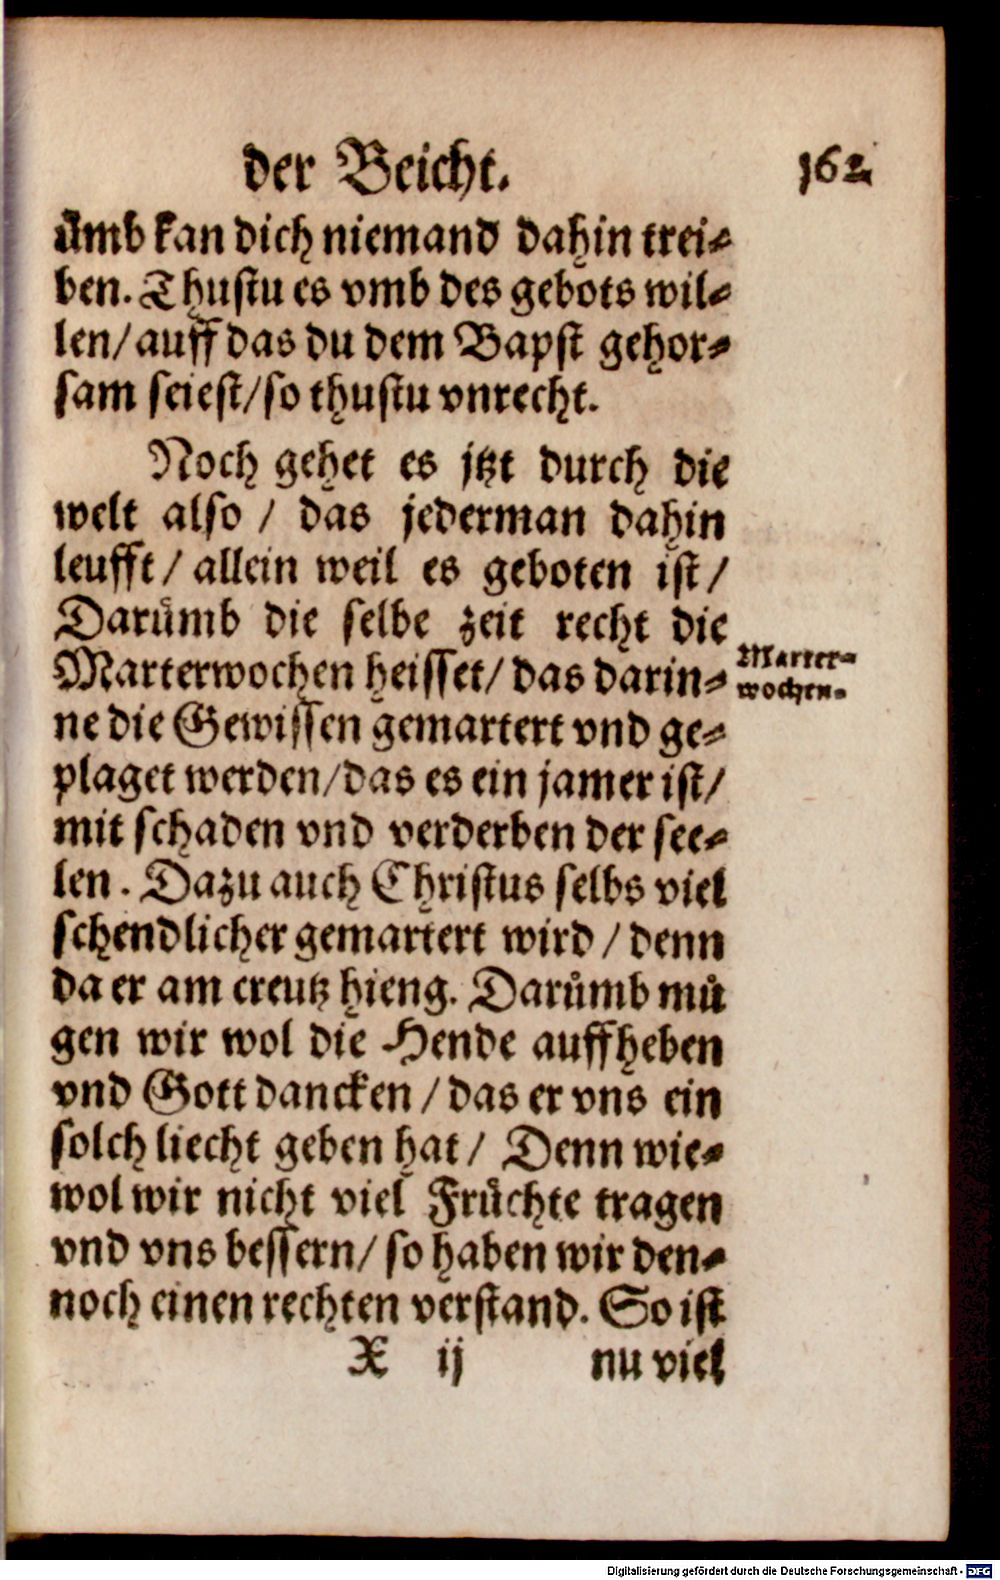 der Beicht. 162
ůmb kan dich niemand dahin trei-
ben. Thustu es vmb des gebots wil-
len/ auff das du dem Bapst gehor-
sam seiest/ so thustu vnrecht.
Noch gehet es jtzt durch die
welt also / das jederman dahin
leufft / allein weil es geboten ist /
Darůmb die selbe zeit recht die
Marterwochen heisset/ das darin-
Marter-
wochen.
ne die Gewissen gemartert vnd ge-
plaget werden/ das es ein jamer ist/
mit schaden vnd verderben der see-
len. Dazu auch Christus selbs viel
schendlicher gemartert wird / denn
da er am creutz hieng. Darůmb mů
gen wir wol die Hende auffheben
vnd Gott dancken / das er vns ein
solch liecht geben hat / Denn wie-
wol wir nicht viel Frůchte tragen
vnd vns bessern/ so haben wir den-
noch einen rechten verstand. So ist
X ij nu viel
Digitalisierung gefördert durch die Deutsche Forschungsgemeinschaft - DFG